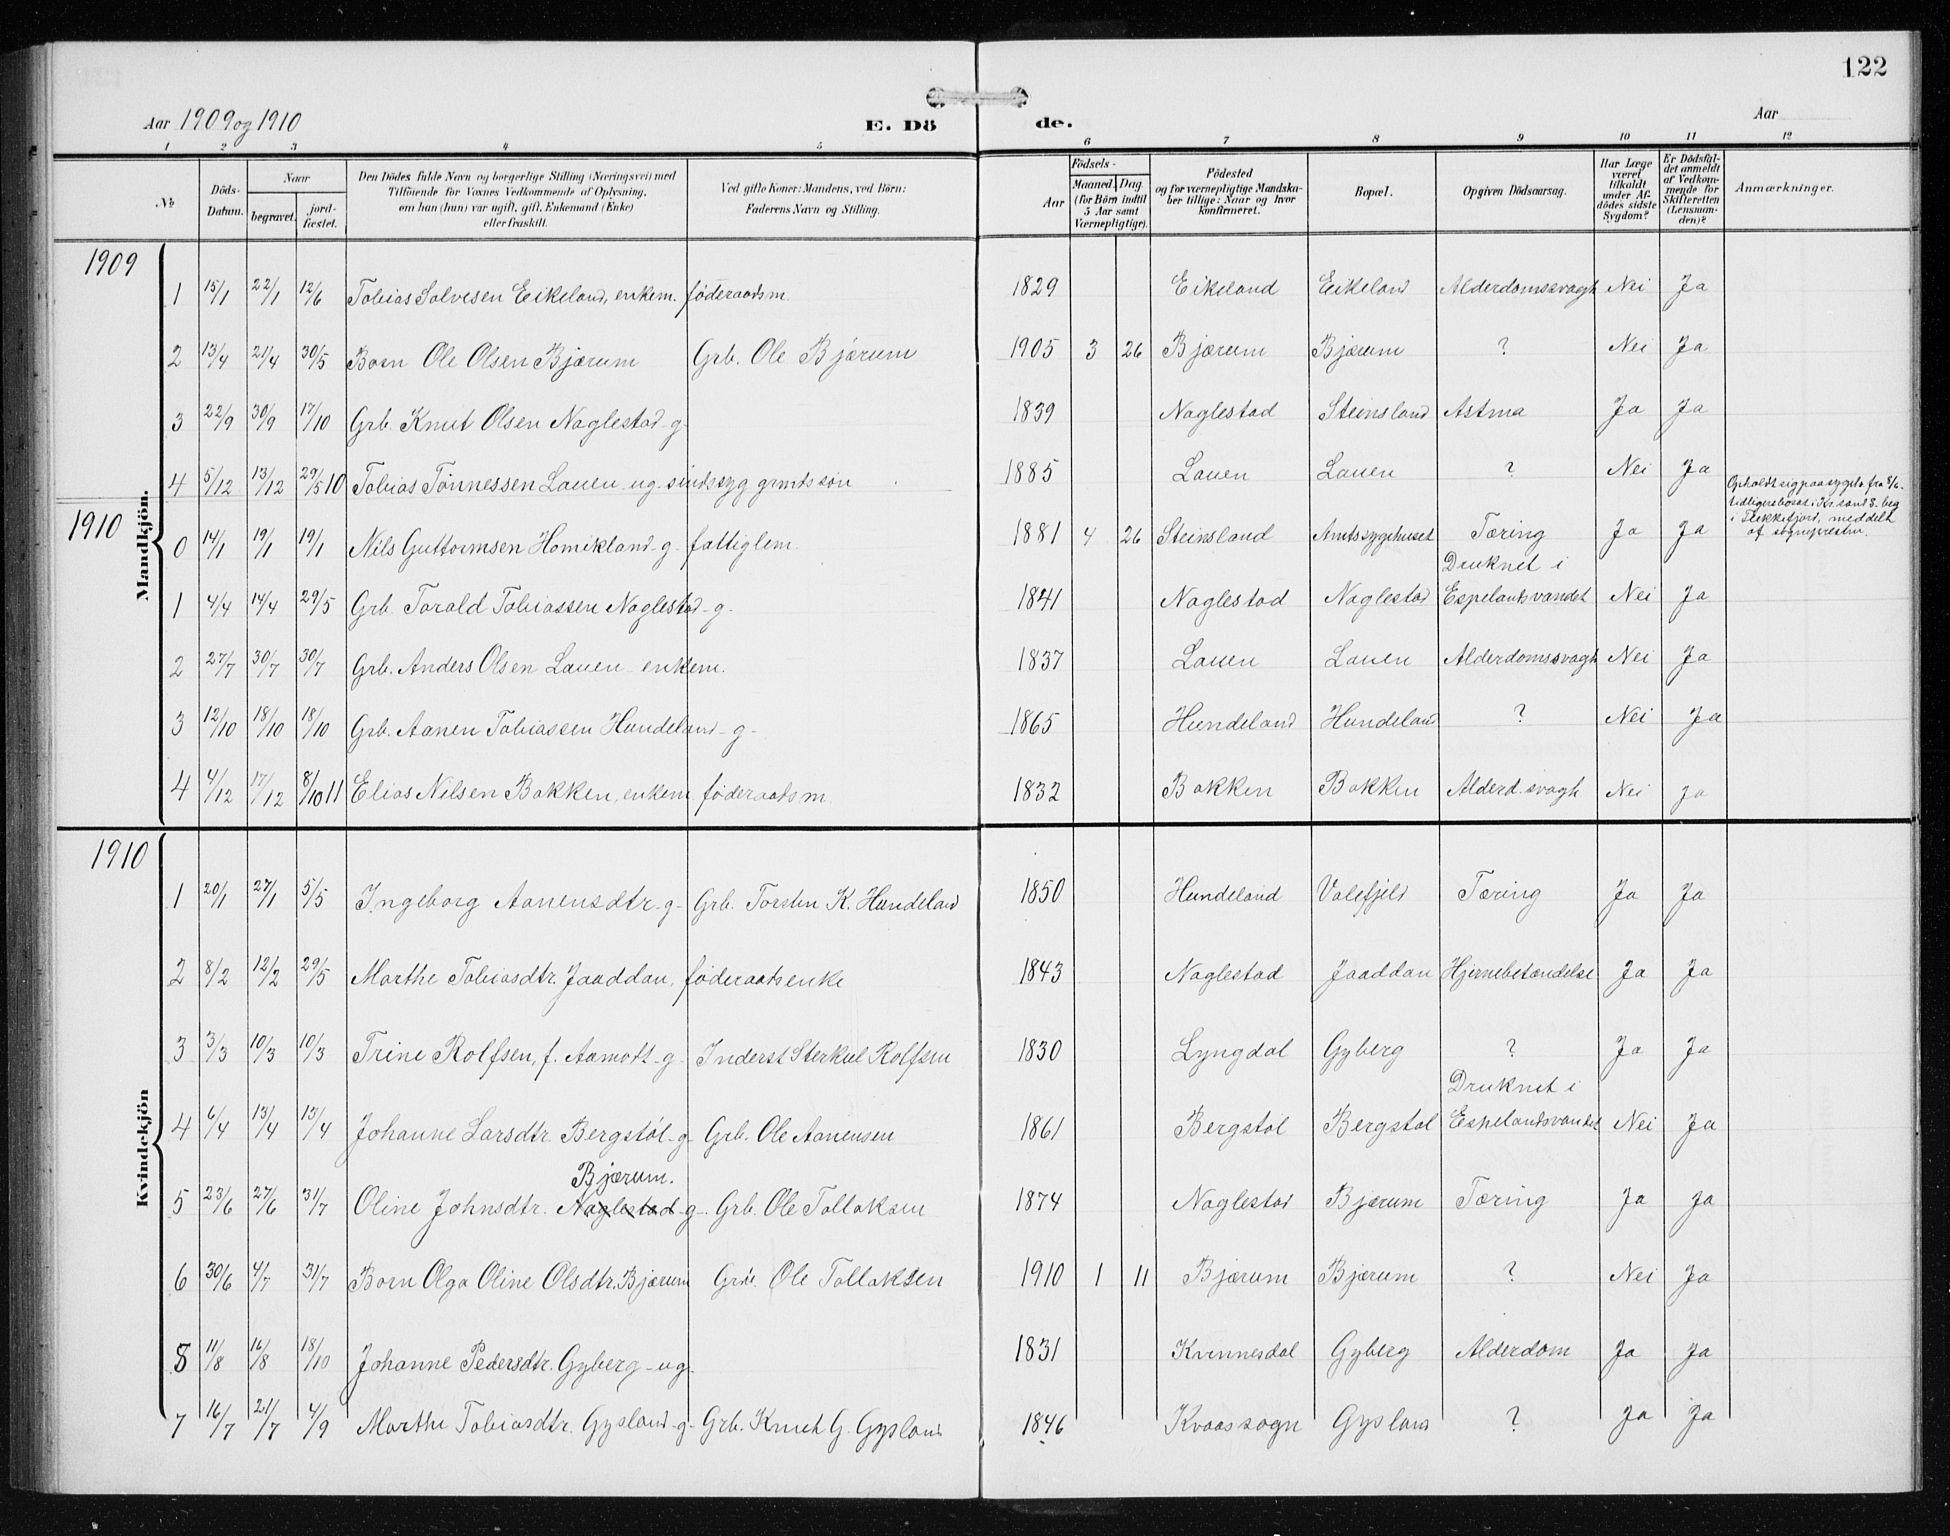 122
Aar 1909 og 1910
E. Dö
de.
Aar
1 2 3 4 5 6 7 8 9 10 11 12
№
Döds-Datum.
Naar
begravet.
jord-fæstet.
Den Dödes fulde Navn og borgerlige Stilling (Næringsvei) med
Tilföiende for Voxnes Vedkommende af Oplysning,
om han (hun) var ugift, gift, Enkemand (Enke)
eller fraskilt.
Ved gifte Koner: Mandens, ved Börn:
Faderens Navn og Stilling.
Födsels-
Aar
Maaned. Dag.
(for Börn indtil
5 Aar samt
Værnepligtige).
Födested
og for værnepligtige Mandska-
ber tillige: Naar og hvor
konfirmeret.
Bopæl.
Opgiven Dödsaarsag.
Har Læge
været
tilkaldt
under Af-
dödes sidste
Sygdom?
Er Dödsfal-
det anmeldt
af Vedkom-
mende for
Skifteretten
(Lensman-
den)?
Anmærkninger.
Mandkjön.
1909
1 15/1 22/1 12/6 Tobias Salvesen Eikeland, enkem. føderaadsm. 1829 Eikeland Eikeland Alderdomssvagh Nei Ja
2 13/4 21/4 30/5 Barn Ole Olsen Bjærum Grb. Ole Bjærum 1905 3 26 Bjærum Bjærum ? Nei Ja
3 22/9 30/9 17/10 Grb. Knut Olsen Naglestad -g- 1839 Naglestad Steinsland Astma Ja Ja
4 5/12 13/12 29/5 10 Tobias Tønnessen Lauen -ug- sindssyg grmdssøn 1885 Lauen Lauen ? Nei Ja
1910
0 14/1 19/1 19/1 Nils Guttormsen Homikland -g- fattiglem. 1881 4 26 Steinsland Amtssygehuset Tæring Ja Ja
Opholdt sig paa sygeh. fra 8/6.
tidligere bosat i Kr.sand S. beg
i Flekkefjord, meddelt
af sognepresten.
1 4/4 14/4 29/5 Grb. Torald Tobiassen Naglestad -g- 1841 Naglestad Naglestad Druknet i Espelandsvandet Nei Ja
2 27/7 30/7 30/7 Grb. Anders Olsen Lauen enkem. 1837 Lauen Lauen Alderdomssvagh Nei Ja
3 12/10 18/10 18/10 Grb. Aanen Tobiassen Hundeland -g- 1865 Hundeland Hundeland ? Nei Ja
4 4/12 17/12 8/10 11 Elias Nilsen Bakken, enkem føderaadsm. 1832 Bakken Bakken Alderd.svagh Nei Ja
Kvindekjön
1910
1 20/1 27/1 5/5 Ingeborg Aanensdtr -g- Grb. Torsten K. Hundeland 1850 Hundeland Valefjeld Tæring Ja Ja
2 8/2 12/2 29/5 Marthe Tobiasdtr. Jaaddan, føderaadsenke 1843 Naglestad Jaaddan Hjernebetændelse Ja Ja
3 3/3 10/3 10/3 Trine Rolfsen, f. Aamodt -g- Inderst Sterkel Rolfsen 1830 Lyngdal Gyberg ? Ja Ja
4 6/4 13/4 13/4 Johanne Larsdtr. Bergstøl -g- Grb. Ole Aanensen 1861 Bergstøl Bergstøl Druknet i Espelandsvandet Nei Ja
5 23/6 27/6 31/7 Oline Johnsdtr. Naglestad Bjærum. -g- Grb. Ole Tollaksen 1874 Naglestad Bjærum Tæring Ja Ja
6 30/6 4/7 31/7 Barn Olga Oline Olsdtr. Bjærum Grb. Ole Tollaksen 1910 1 11 Bjærum Bjærum ? Nei Ja
8 11/8 16/8 18/10 Johanne Pedersdtr. Gyberg -ug- 1831 Kvinnesdal Gyberg Alderdom Ja Ja
7 16/7 21/7 4/9 Marthe Tobiasdtr. Gysland -g- Grb. Knut G. Gysland 1846 Kvaassogn Gysland ? Ja Ja